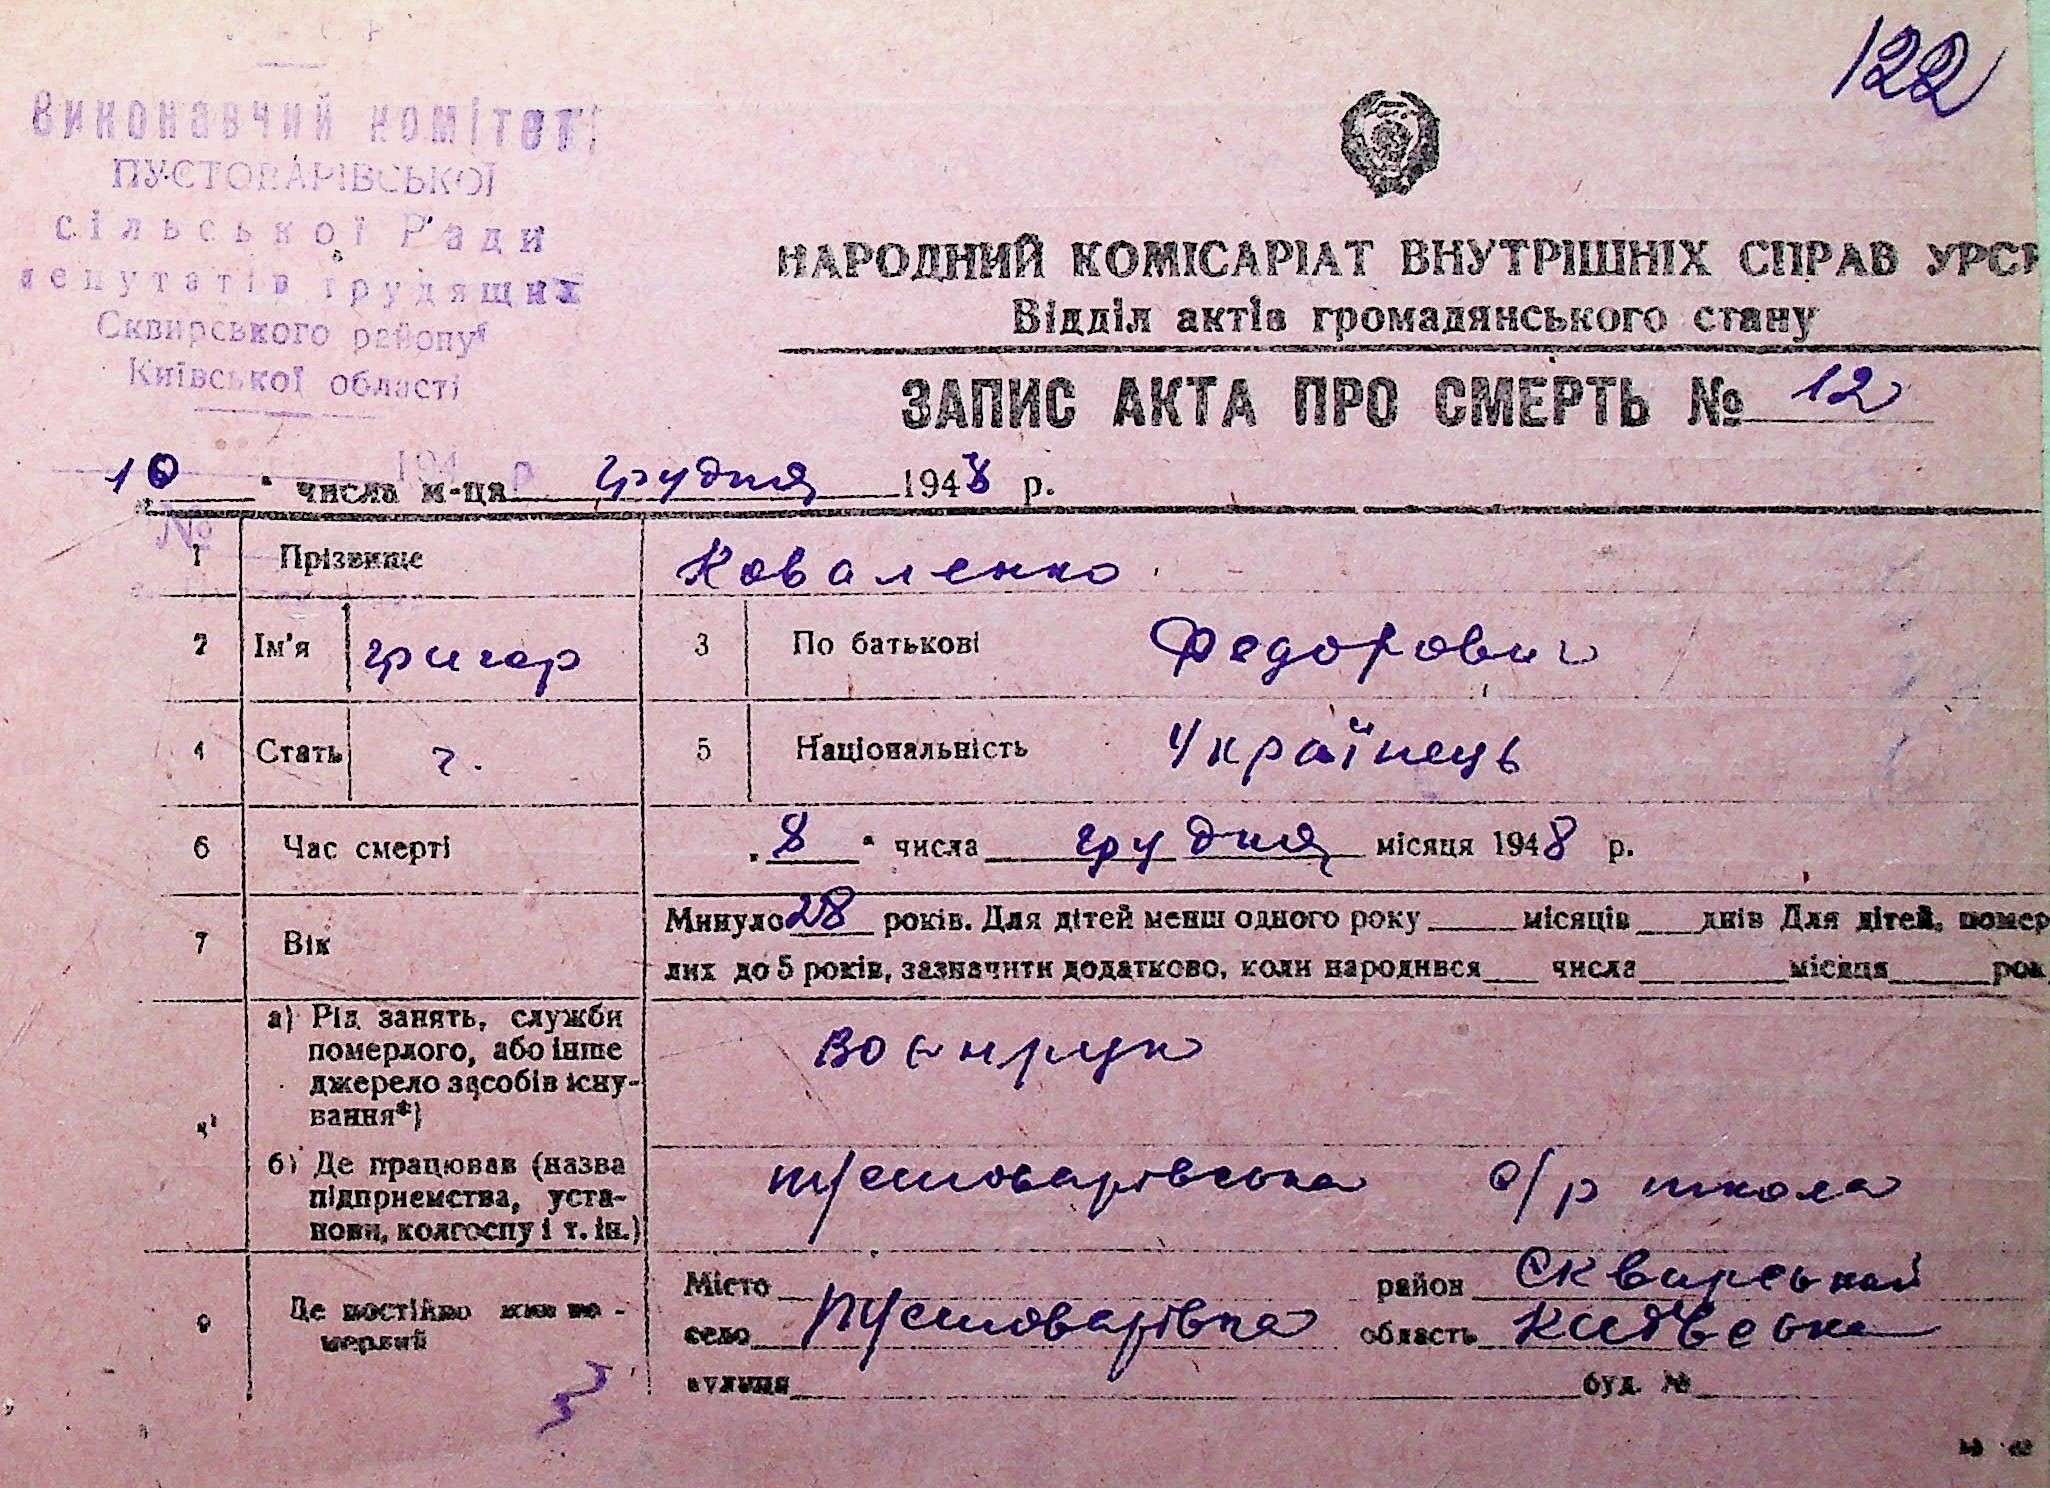 122
Виконавчий комітет
ПУСТОВАРІВСЬКОЇ
сільської Ради
депутатів трудящих
Сквирського району
Київської області
НАРОДНИЙ КОМІСАРІАТ ВНУТРІШНІХ СПРАВ УРСР
Відділ актів громадянського стану
ЗАПИС АКТА ПРО СМЕРТЬ № 12
194 р.
10 " числа м-ця грудня 1948 р.
№
1 Прізвище Коваленко
2 Ім'я Григор 3 По батькові Федорович
4 Стать ч. 5 Національність Українець
6 Час смерті „ 8 " числа грудня місяця 1948 р.
7 Вік Минуло 28 років. Для дітей менш одного року ___ місяців ___ днів Для дітей, помер
лих до 5 років, зазначити додатково, коли народився ___ числа ___ місяця ___ рок
а) Рід занять, служби
померлого, або інше
джерело засобів існу-
вання*) военрук
б) Де працював (назва
підприємства, уста-
нови, колгоспу і т. ін.) Пустоварівська с/р школа
9 Де постійно жив по-
мерлий
Місто ___ район Сквирський
село Пустоварівка область Київська
вулиця ___ буд. №